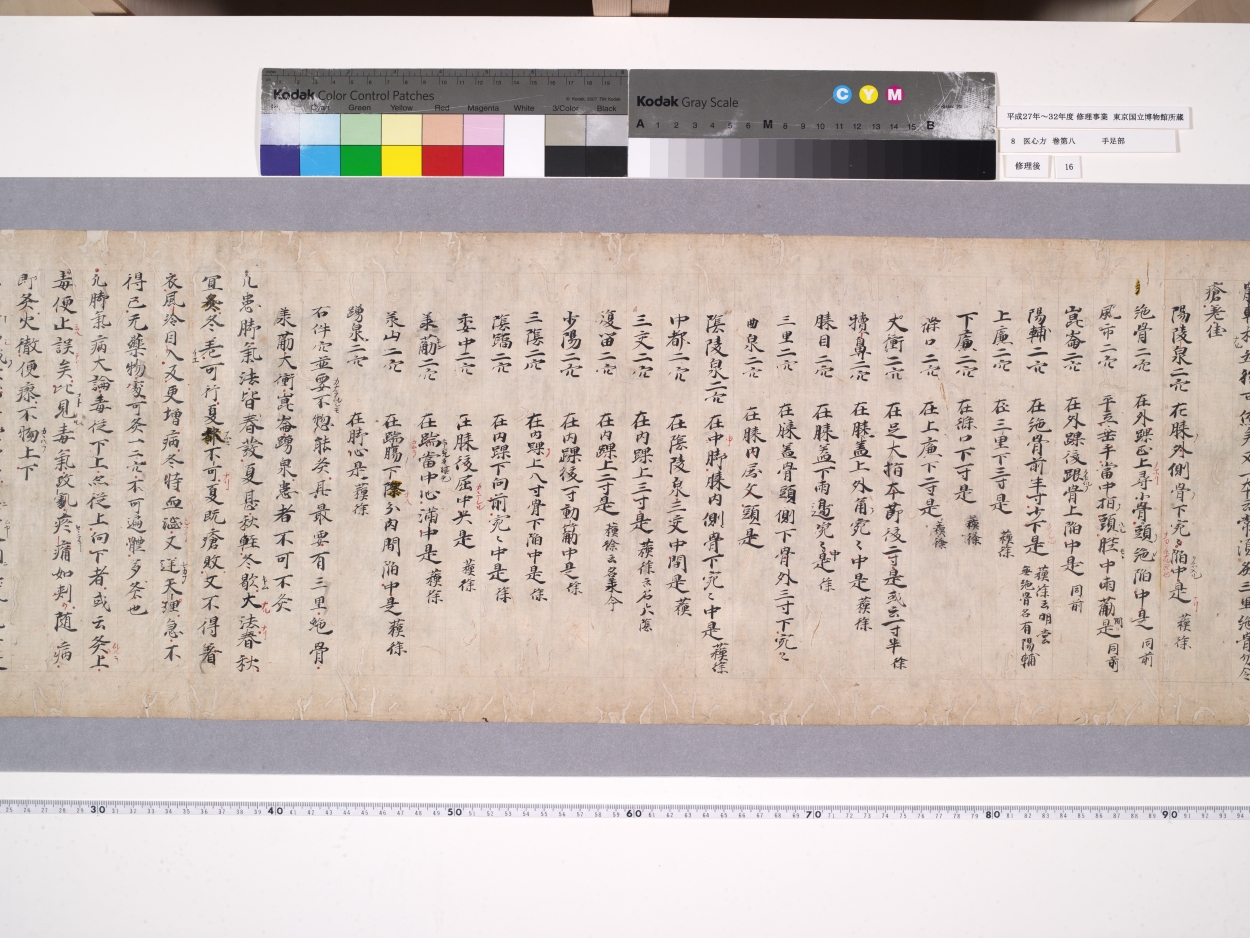 Kodak Color Control Patches
Green Yellow Red Magenta White 3/Color Black
Kodak Gray Scale
C Y M
A 1 2 3 4 5 6 M 8 9 10 11 12 13 14 15 B
平成27年～32年度 修理事業 東京国立博物館所蔵
8 医心方 巻第八 手足部
修理後 16
瘡差佳
陽陵泉二穴 在膝外側骨下宛〻陥中是 蘓徐
絶骨二穴 在外踝正上尋小骨頭絶陥中是 同前
風市二穴 平立垂手當中指頭髀中兩葡是 同前
崑崙二穴 在外踝後跟骨上陥中是 同前
陽輔二穴 在絶骨前半寸少下是 蘓徐云明堂
無絶骨名有陽輔
上廉二穴 在三里下三寸是 蘓徐
下廉二穴 在條口下寸是 蘓徐
條口二穴 在上廉下二寸是 蘓徐
大衝二穴 在足大指本莭後二寸是或云一寸半 徐
犢鼻二穴 在膝盖上外角宛〻中是 蘓徐
膝目二穴 在膝盖下兩邊宛〻中是 徐
三里二穴 在膝盖骨頭側下骨外三寸下宛〻
曲泉二穴 在膝内屈文頭是
陰陵泉二穴 在中脚膝内側骨下宛〻中是 蘓徐
中都二穴 在陰陵泉三交中間是 蘓
三交二穴 在内踝上三寸是 蘓徐
復留二穴 在内踝上二寸是
少陽二穴 在内踝後一寸動筋中是 徐
三陰二穴 在内踝上八寸骨下陥中是 徐
陰蹻二穴 在内踝下向前宛〻中是 徐
委中二穴 在膝後屈中央是 蘓徐
承筋二穴 在腨當中心滿中是 蘓徐
承山二穴 在腨腸下際分肉間陥中是 蘓徐
踴泉二穴 在脚心是 蘓徐
右件穴並要不惣能灸其最要有三里絶骨
承筋大衝崑崙踴泉患者不可不灸
凡患脚氣法皆春發夏甚秋輕冬歇大法春秋
宜灸冬亦可行夏都不可夏既瘡敗又不得着
衣風冷目入及更增病冬時血澁又逆天理急不
得已无藥物處可灸一二穴不可遍體多灸也
凡脚氣病大論毒從下上亦從上向下者或云灸上
毒便止誤矣此見毒氣攻亂疼痛如刺随病
即灸火徹便瘳不拘上下
30 40 50 60 70 80 90